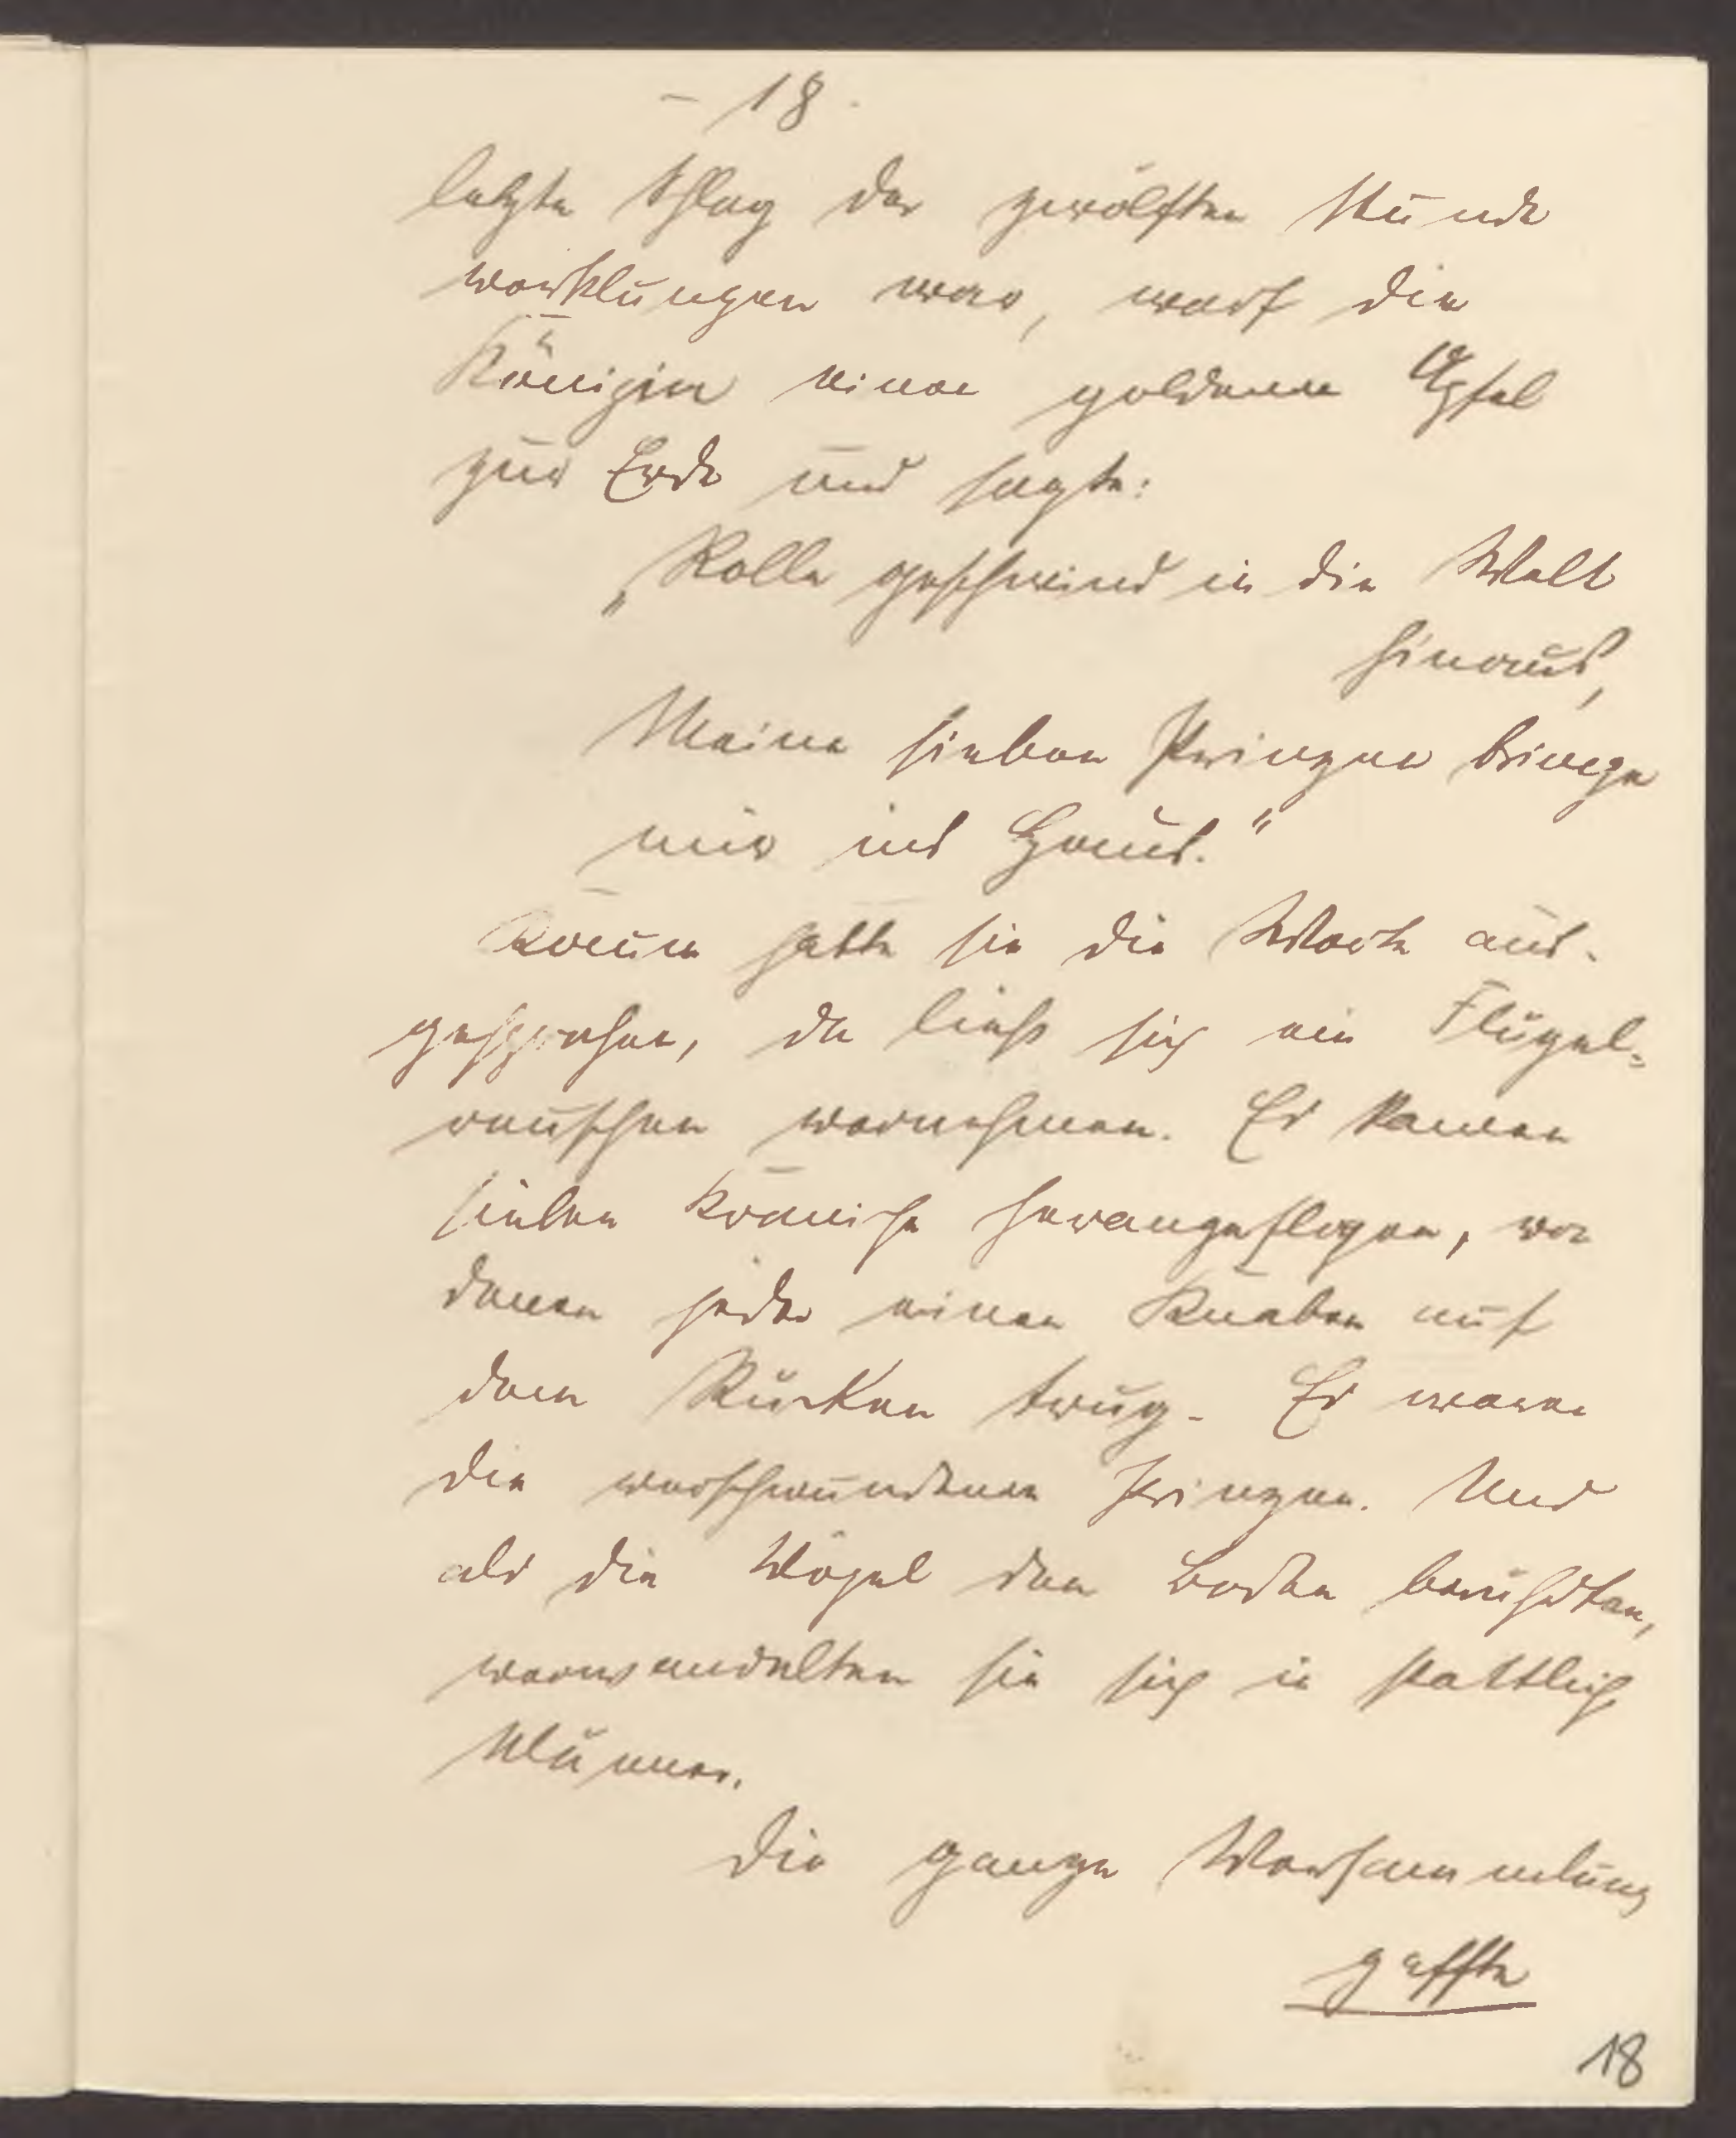 – 18 –
letzte Schlag der zwölften Stunde
verklungen war, warf die
Königin einen goldenen Apfel
zur Erde und sagte:
„Rolle geschwind in die Welt
hinaus,
Meine sieben Prinzen bringe
mir ins Haus."
Kaum hatte sie die Worte aus-
gesprochen, da liess sich ein Flügel-
rauschen vernehmen. Es kamen
sieben Kraniche herangeflogen, von
denen jeder einen Knaben auf
dem Rücken trug. Es waren
die verschwundenen Prinzen. Und
als die Vögel den Boden berührten,
verwandelten sie sich in stattliche
Männer.
Die ganze Versammlung
gaffte
18